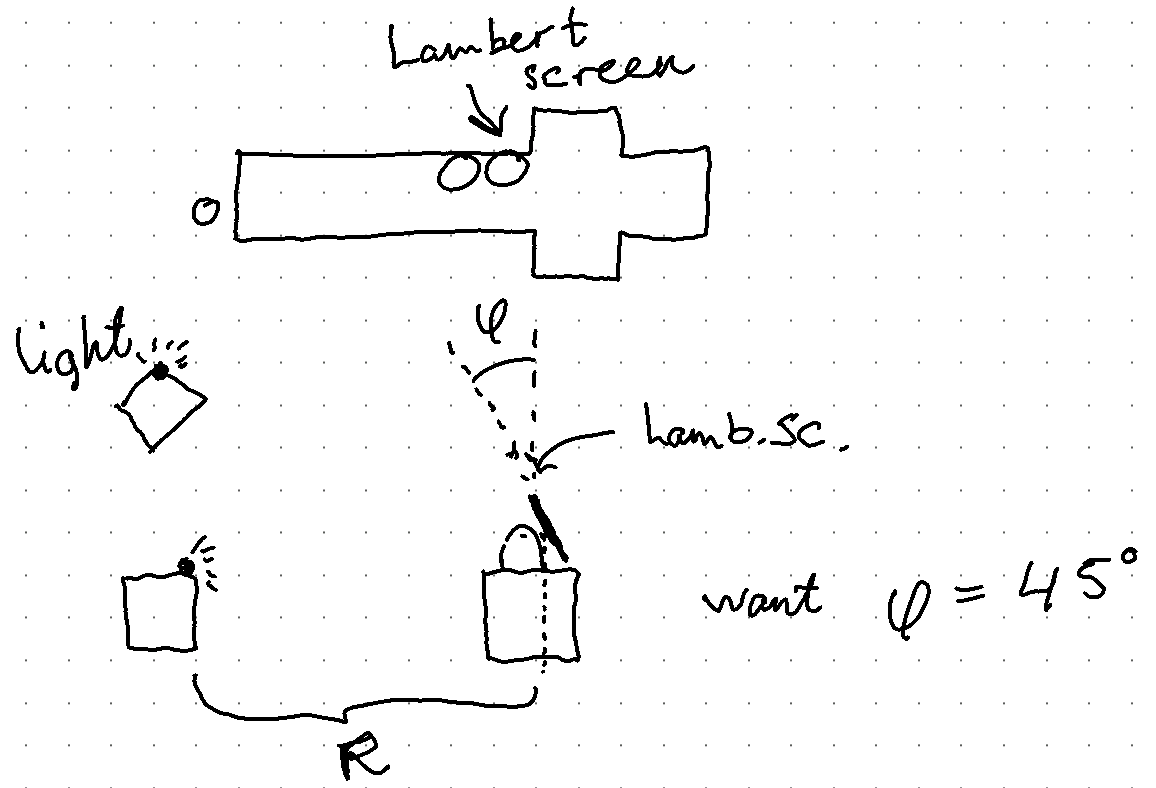 Lambert
screen
φ
light
Lamb.sc.
want φ = 45°
R